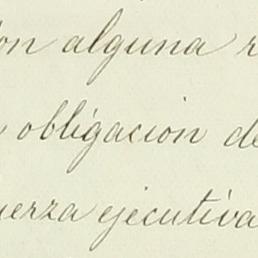 on alguna
obligacion de
uerza ejecutiva